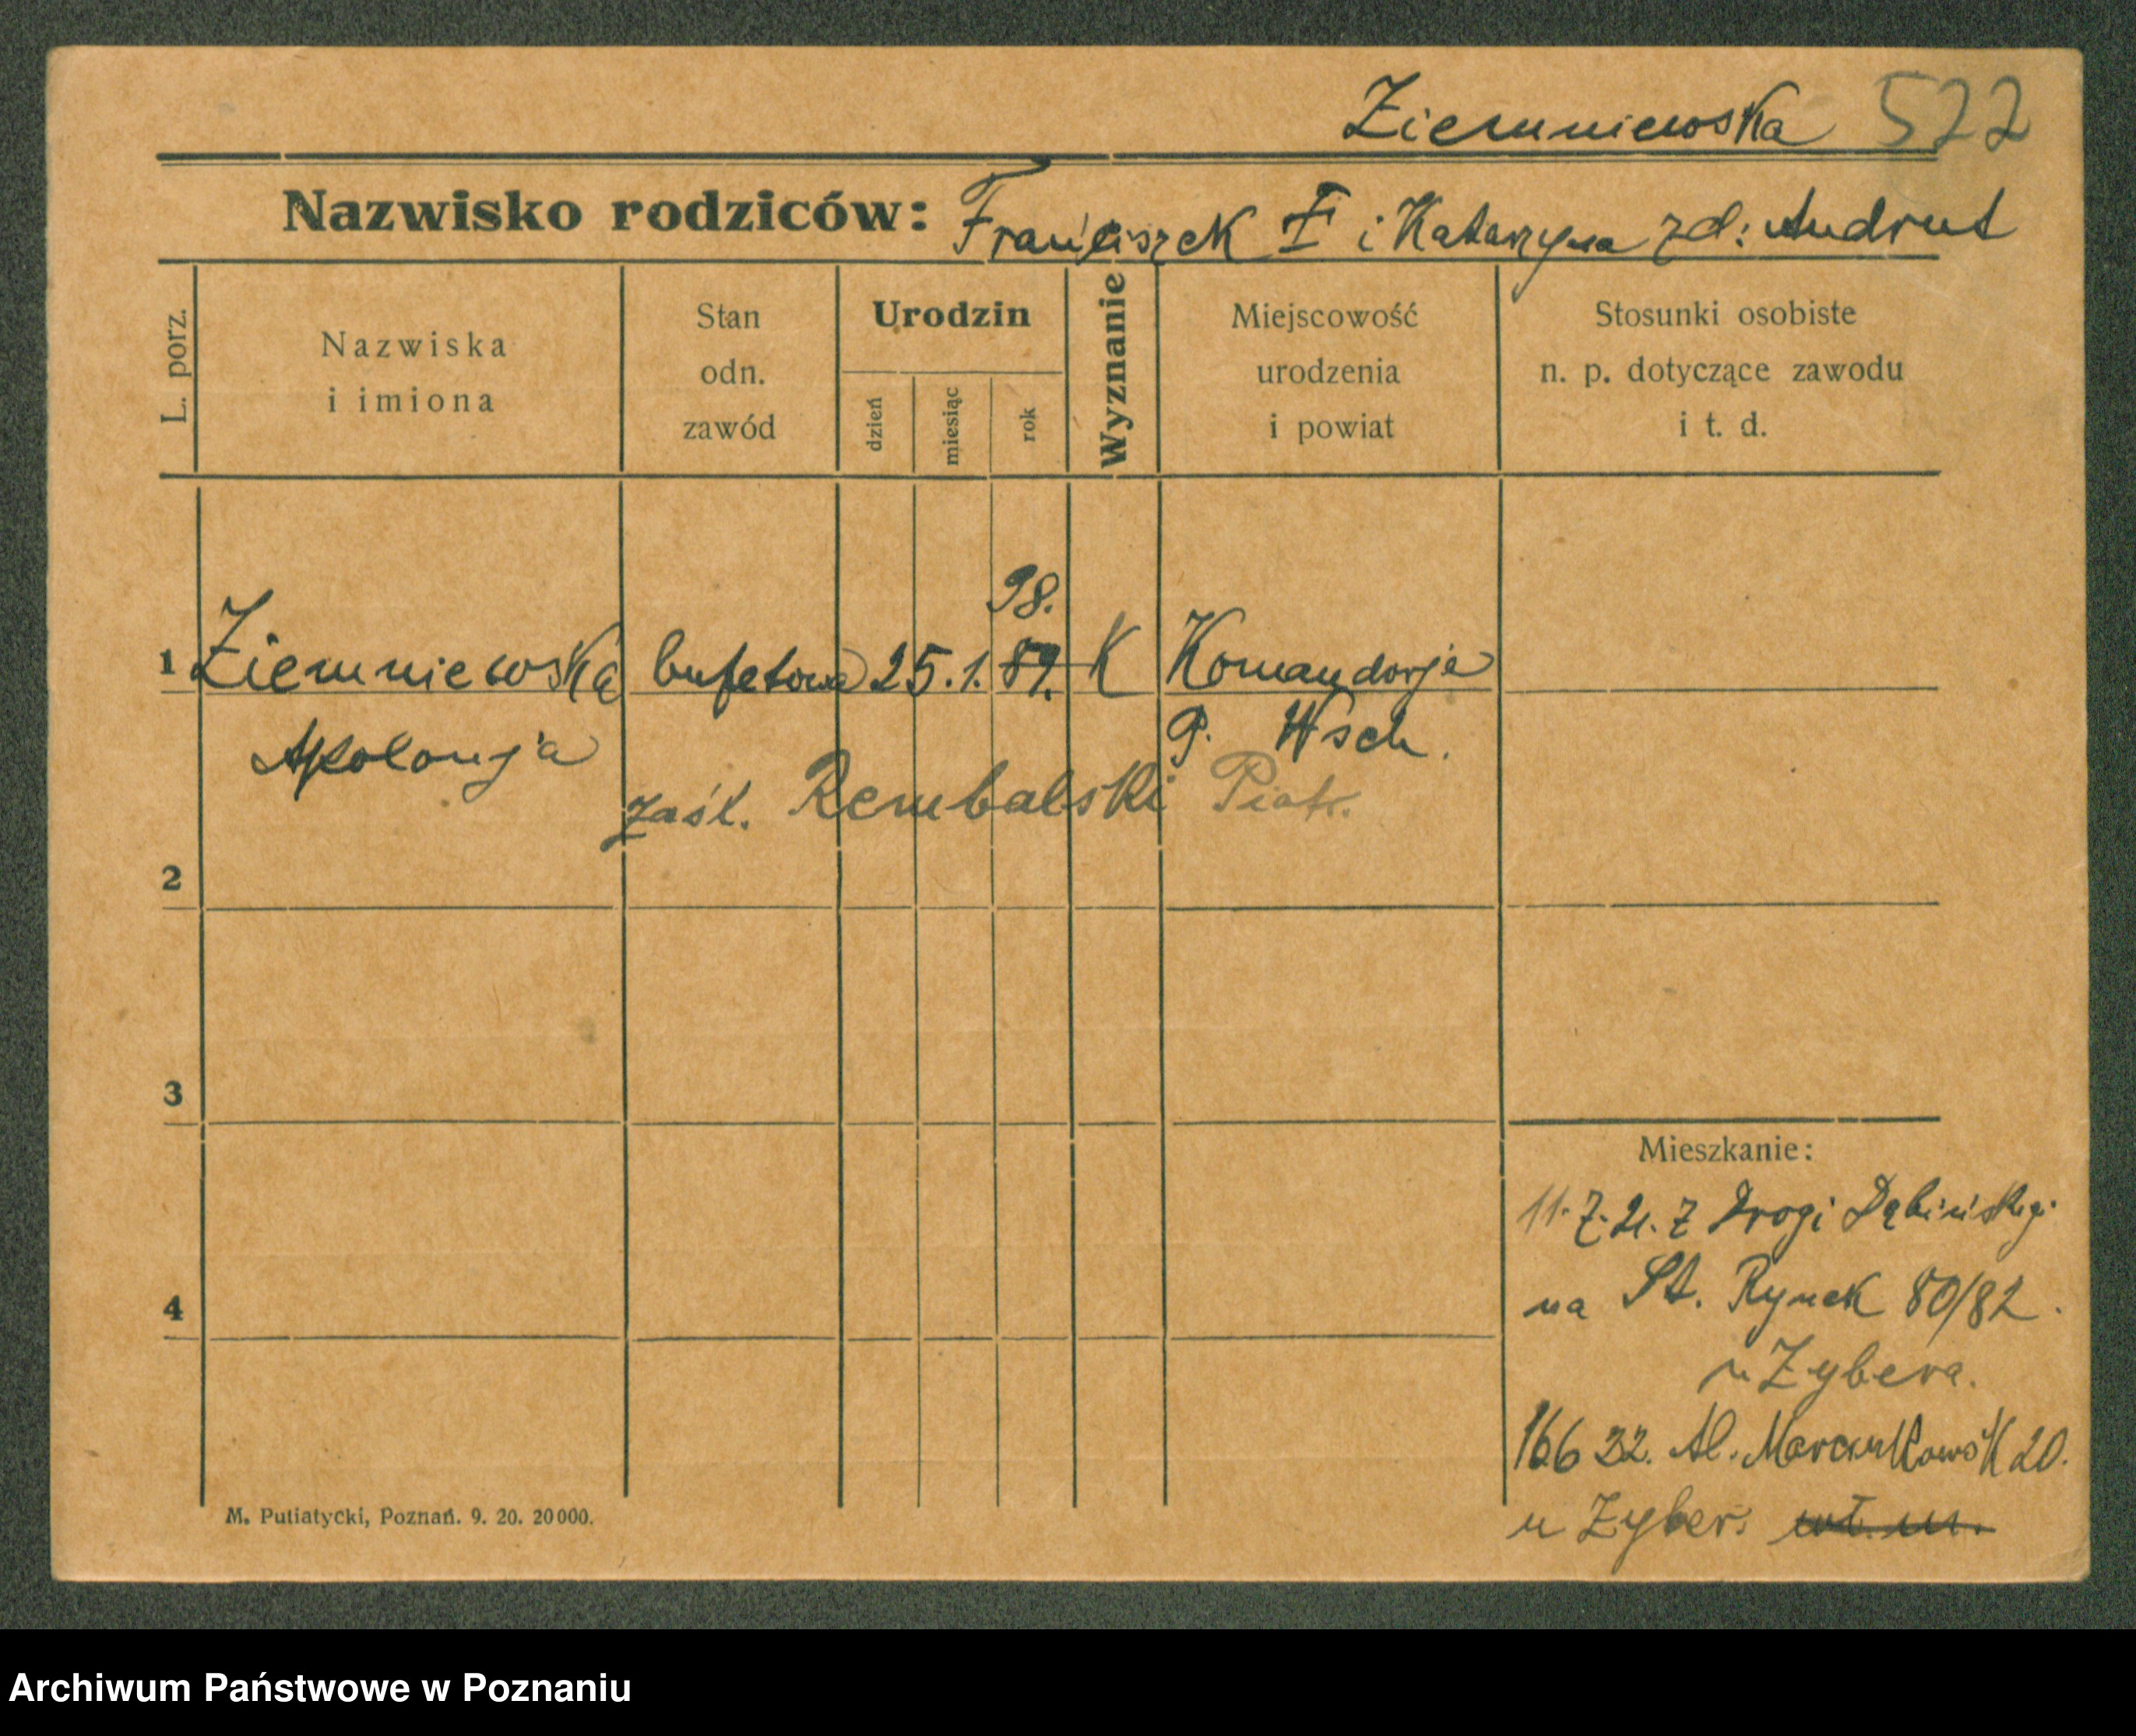 Ziemniewska 522
Nazwisko rodziców: Franciszek Z i Katarzyna zd: Andrut
L. porz.
Nazwiska
i imiona
Stan
odn.
zawód
Urodzin
dzień
miesiąc
rok
Wyznanie
Miejscowość
urodzenia
i powiat
Stosunki osobiste
n. p. dotyczące zawodu
i t. d.
98.
1 Ziemniewska bufetowa 25. 1. 89. K Komandorja
Apolonja P. Wsch.
zaśl. Rembalski Piotr.
2
3
4
Mieszkanie:
11. 7. 21. z Drogi Dębińskiej
na St. Rynek 80/82.
u Zybera.
16 6 32. Al. Marcinkowsk 20.
u Zybers wł. m.
M. Putiatycki, Poznań. 9. 20. 20000.
Archiwum Państwowe w Poznaniu